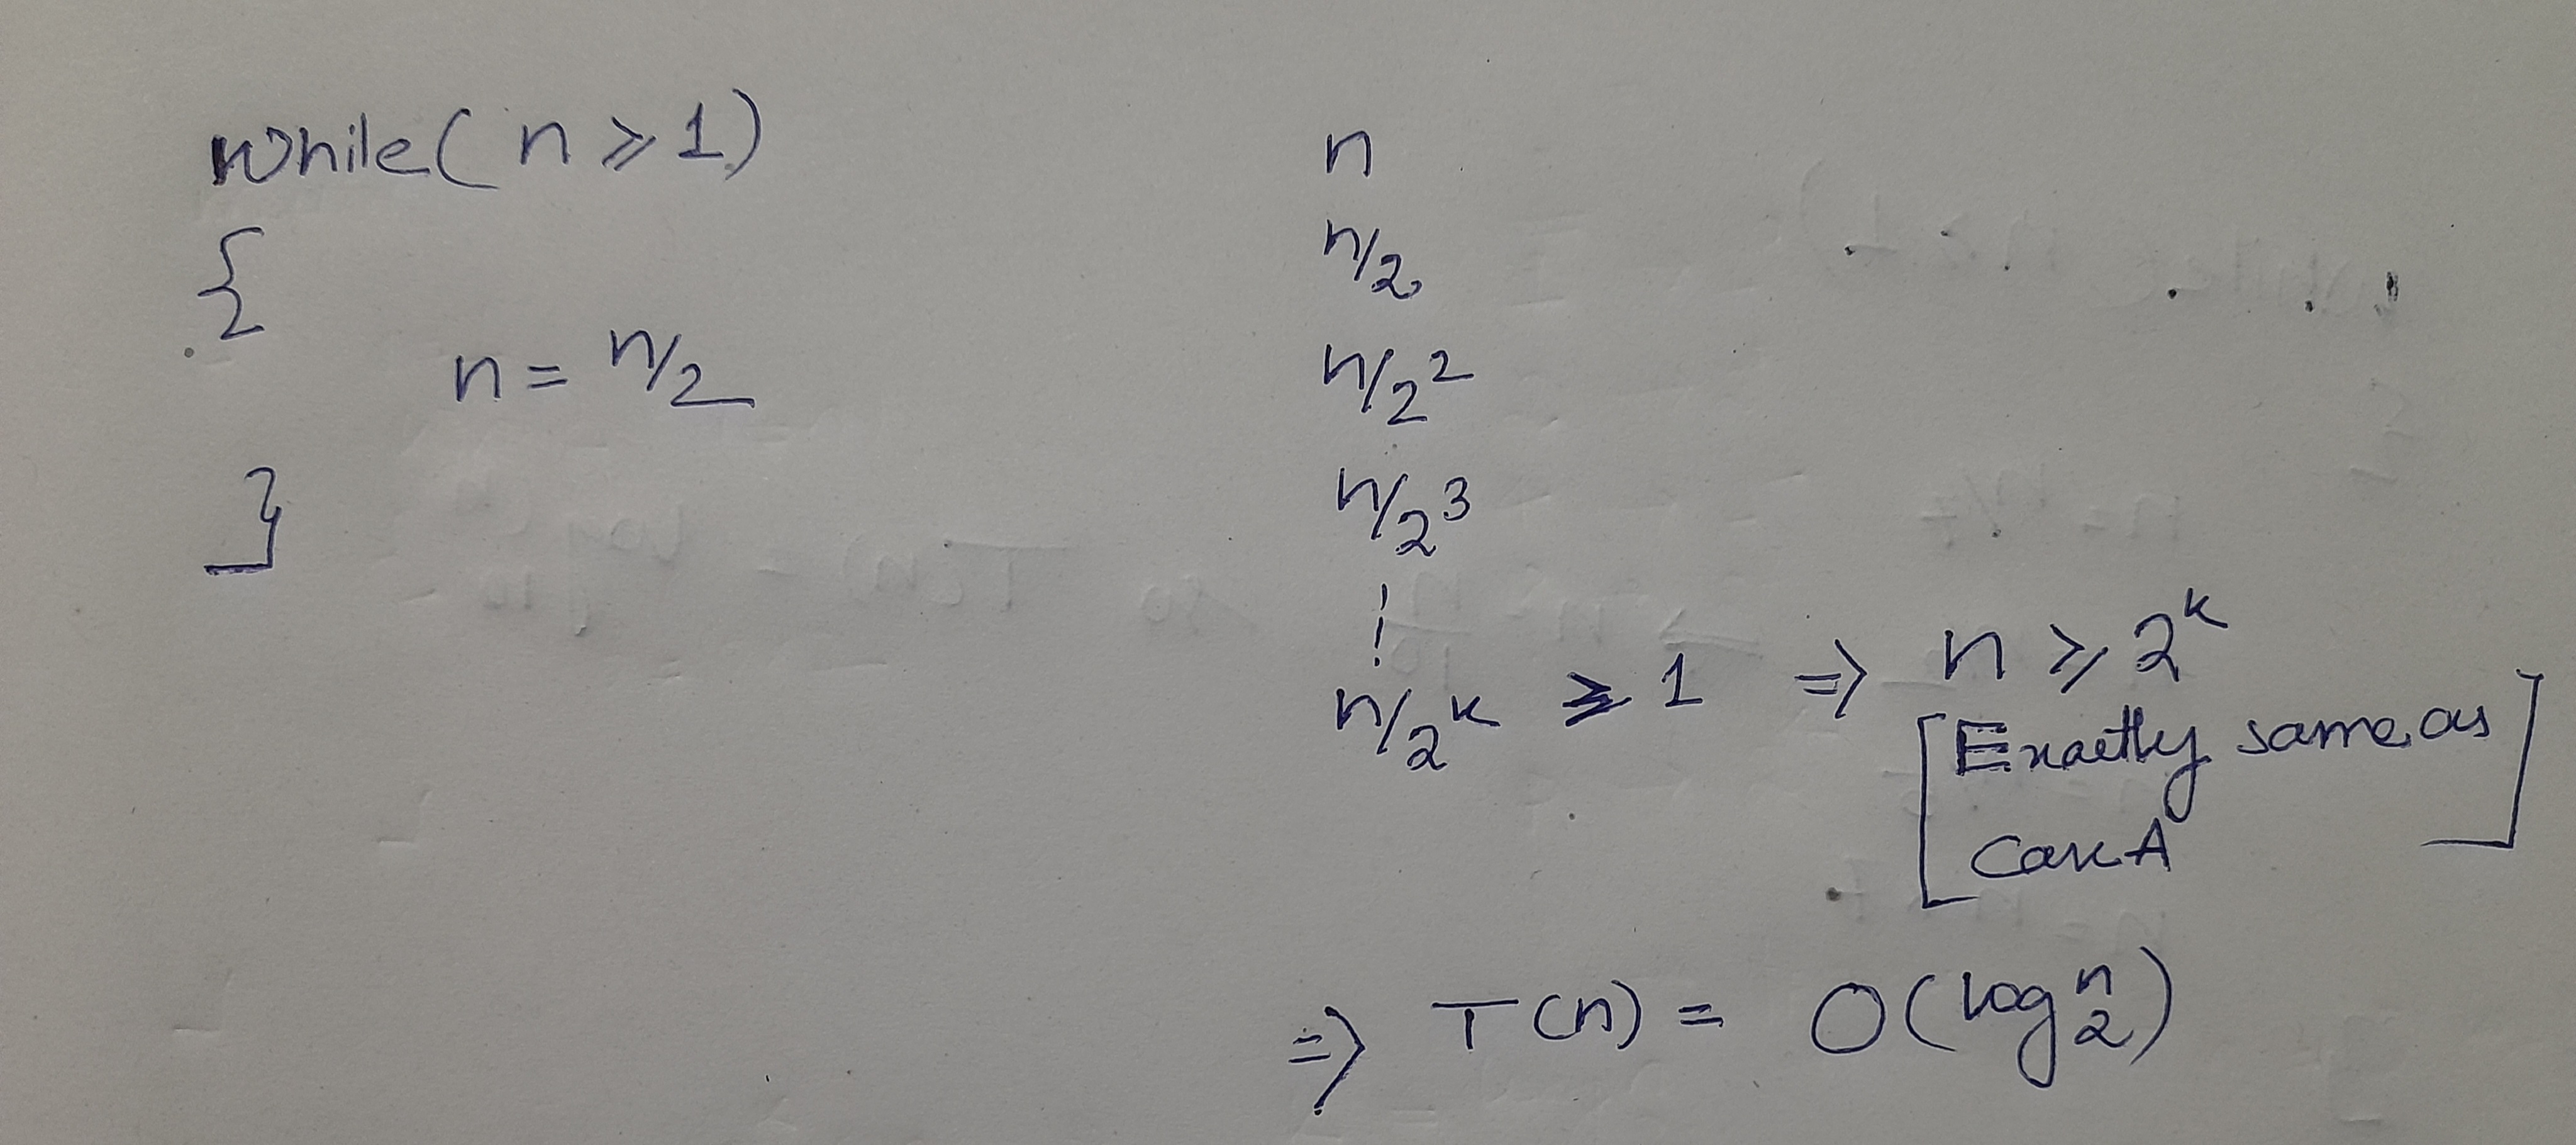 while( n ≥ 1)
{
n = n/2
}
n
n/2
n/2²
n/2³
⋮
n/2ᵏ ≥ 1 ⇒ n ≥ 2ᵏ
[Exactly same as
Case A]
⇒ T(n) = O(log₂ⁿ)